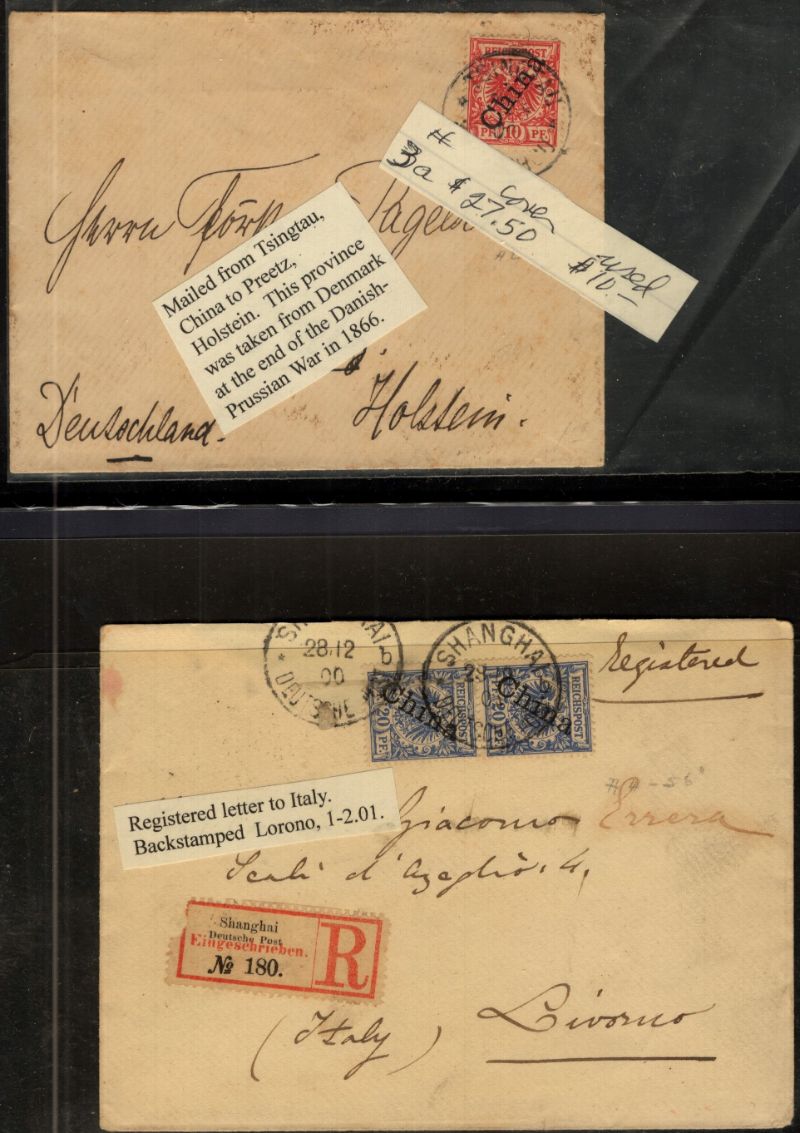 REICHSPOST
China
PF 10 PF.
#
3a $ cover
27.50
used
$10.-
Herrn
Mailed from Tsingtau,
China to Preetz,
Holstein. This province
was taken from Denmark
at the end of the Danish-
Prussian War in 1866.
Deutschland.
Holstein.
SHANGHAI
28.12
00
b
SHANGHA
Registered
REICHSPOST
China
20 PF.
REICHSPOST
China
20 PF.
Registered letter to Italy.
Backstamped Lorono, 1-2.01.
Giacomo Errera
Scali d'Azeglio. 4.
Shanghai
Deutsche Post
Eingeschrieben.
№ 180.
R
(Italy)
Livorno